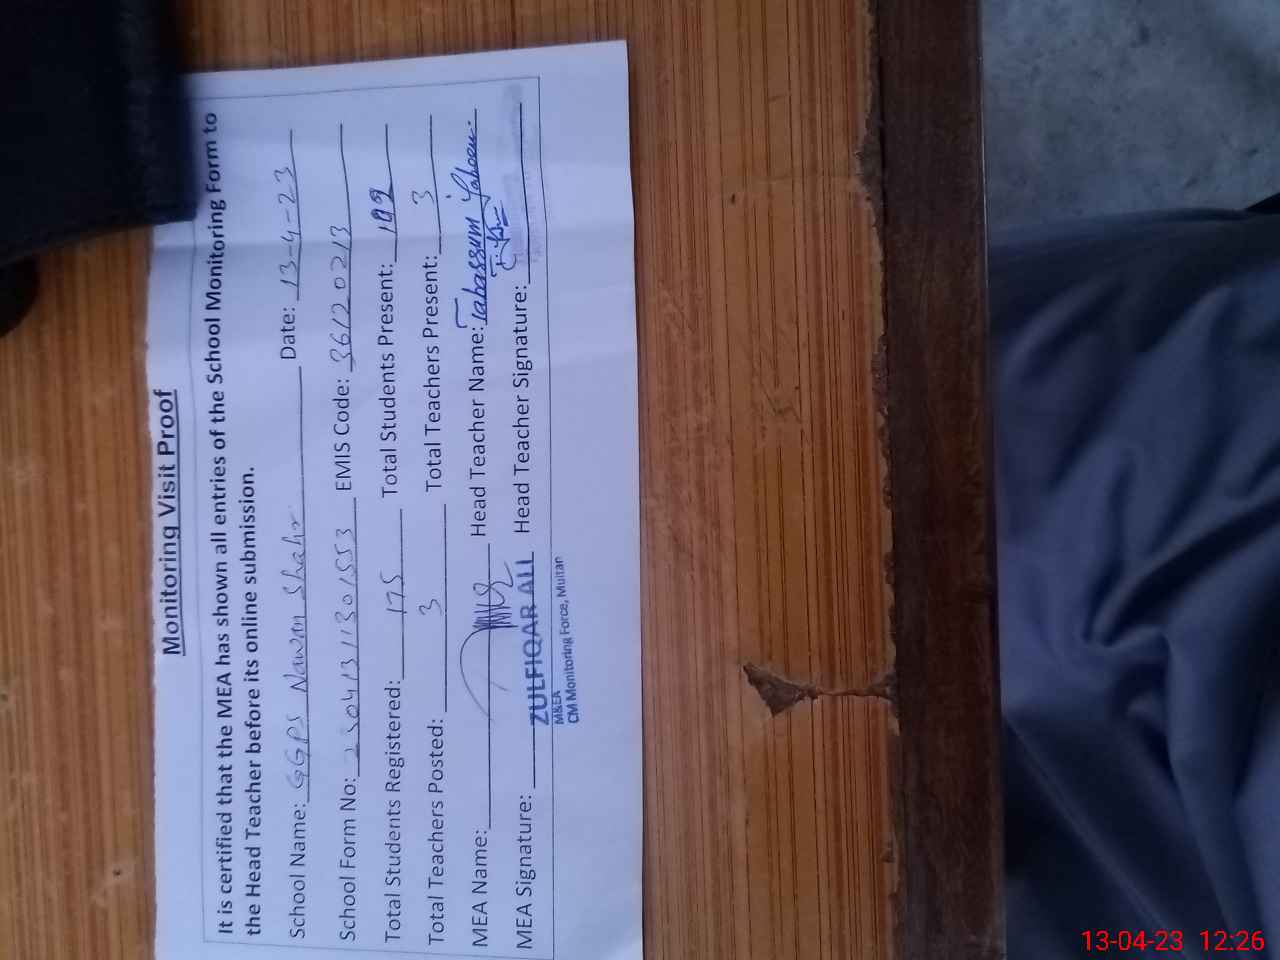 Monitoring Visit Proof
It is certified that the MEA has shown all entries of the School Monitoring Form to
the Head Teacher before its online submission.
School Name: GGPS Nawan Shahr Date: 13-4-23
School Form No: 23041311301553 EMIS Code: 36120213
Total Students Registered: 175 Total Students Present:
Total Teachers Posted: 3 Total Teachers Present: 3
MEA Name: Head Teacher Name: Tabassum
MEA Signature: Head Teacher Signature:
ZULFIQAR ALI
M&EA
CM Monitoring Force, Multan
13-04-23 12:26